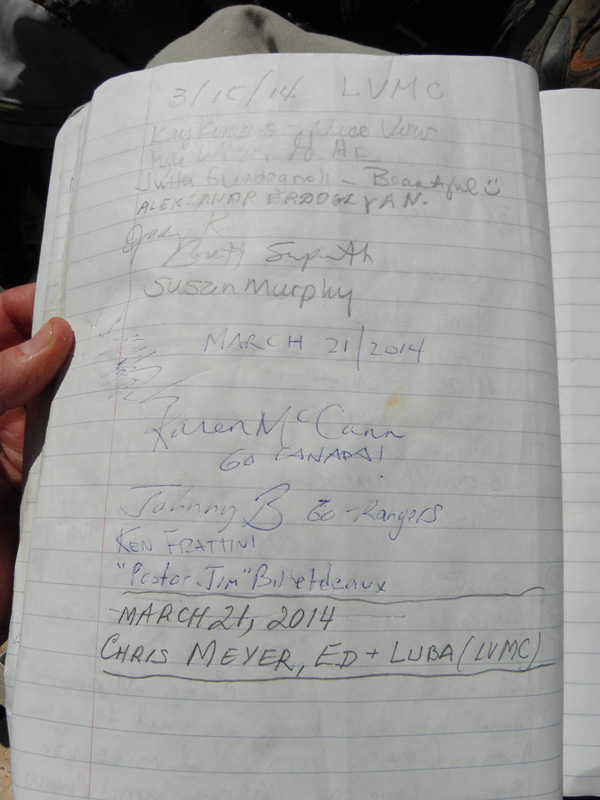 3/15/14 LVMC
Kay - Nice View
Kyle
Jutta - Beautiful
ALEKSANDR ERDOGLYAN.
R.
Brett
Susan Murphy
MARCH 21/2014
Karen McCann
GO CANADA!
Johnny B Go-Rangers
KEN FRATTINI
"Pastor Jim" Billetdeaux
MARCH 21, 2014
CHRIS MEYER, ED + LUBA (LVMC)